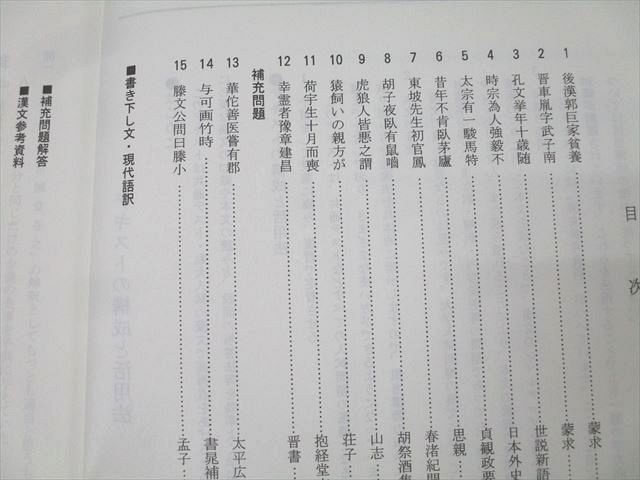 目次
1 後漢郭巨家貧養……蒙求…
2 晋車胤字武子南……蒙求…
3 孔文挙年十歳随……世説新語
4 時宗為人強毅不……日本外史
5 太宗有一駿馬特……貞観政要
6 昔年不肯臥茅廬……思親…
7 東坡先生初官鳳……春渚紀聞
8 胡子夜臥有鼠嚙……胡祭酒集
9 虎狼人皆悪之謂……山志…
10 猿飼いの親方が……荘子…
11 荷宇生十月而喪……抱経堂
12 幸霊者豫章建昌……晋書…
補充問題
13 華佗善医嘗有郡……太平広
14 与可画竹時……書晁補
15 滕文公問曰滕小……孟子…
■書き下し文・現代語訳
■補充問題解答
■漢文参考資料
キストの構成と活用法